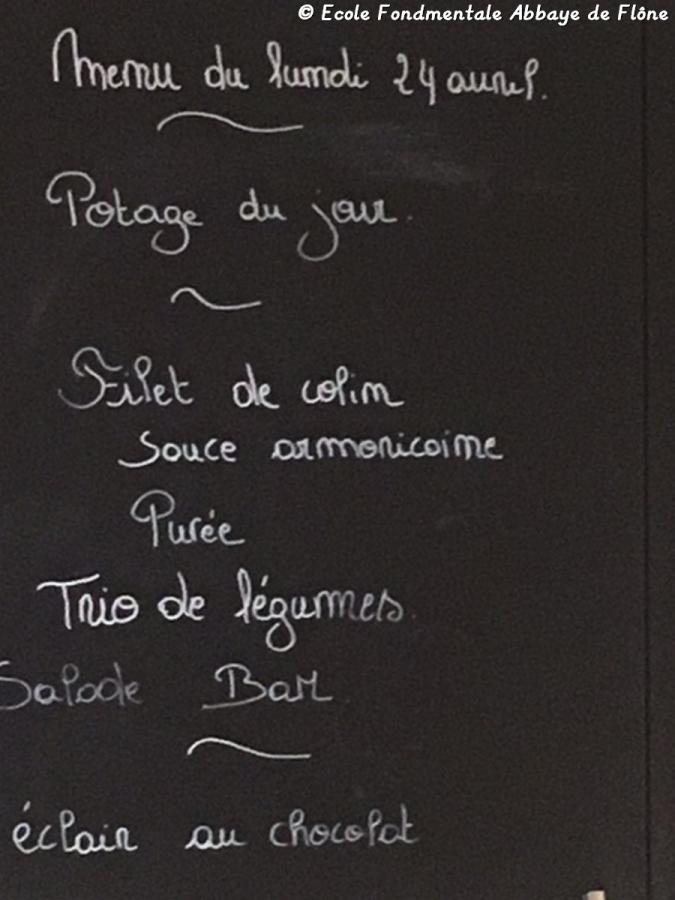 © Ecole Fondmentale Abbaye de Flône
Menu du lundi 24 avril.
Potage du jour.
Filet de colin
Sauce armoricaine
Purée
Trio de légumes
Salade Bar
éclair au chocolat